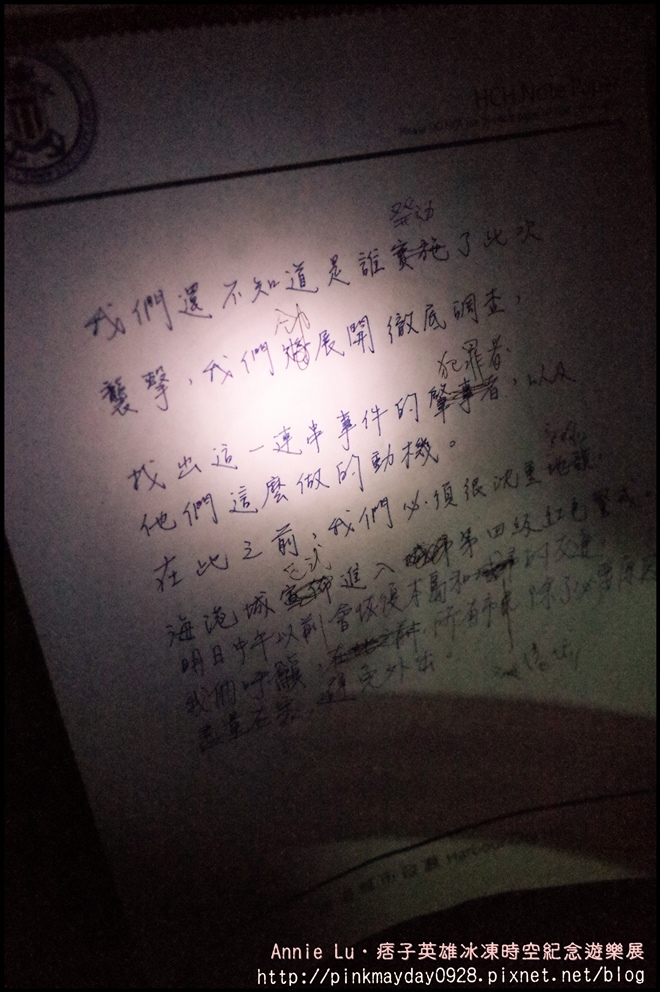 HCH Note Paper
發動
我們還不知道是誰實施了此次
襲擊，我們將展開徹底調查，
犯罪者
找出這一連串事件的肇事者，以及
他們這麼做的動機。
在此之前，我們必須很沈重地
正式
海港城宣佈進入第四級紅色警戒。
明日中午以前會恢復本島和的交通。
我們呼籲，在此之前，所有市民除了必要原因
避免外出。
Annie Lu・痞子英雄冰凍時空紀念遊樂展
http://pinkmayday0928.pixnet.net/blog